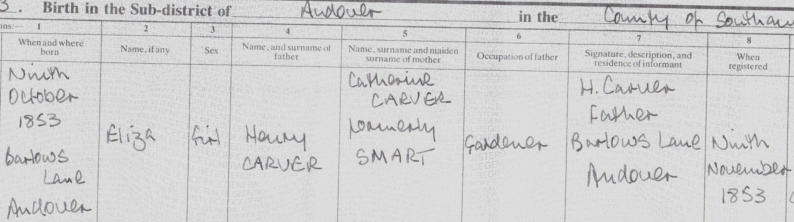 3. Birth in the Sub-district of Andover in the County of Southam
ns:— 1 2 3 4 5 6 7 8
When and where born Name, if any Sex Name, and surname of father Name, surname and maiden surname of mother Occupation of father Signature, description, and residence of informant When registered
Ninth
October
1853
Barlows
Lane
Andover
Eliza
Girl
Henry
CARVER
Catherine
CARVER
formerly
SMART
Gardener
H. Carver
Father
Barlows Lane
Andover
Ninth
November
1853